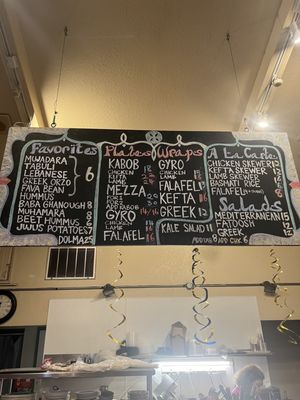 Favorites
MUJADARA
TABULI
LEBANESE
GREEK ORZO
FAVA BEAN
6
HUMMUS
BABA GHANOUGH 8
MUHAMARA 8
BEET HUMMUS 8
JUJUS POTATOES 7
DOLMA 25
Plates
KABOB
CHICKEN
KEFTA
LAMB
MEZZA
FOR 1
FOR 2
ADD KABOB
GYRO 14/16
CHICKEN
LAMB
FALAFEL
Wraps
GYRO
CHICKEN
LAMB
FALAFEL
KEFTA
GREEK 12
KALE SALAD 11
A La Carte
CHICKEN SKEWER
KEFTA SKEWER
LAMB SKEWER
BASMATI RICE
FALAFEL
Salads
MEDITERRANEAN 15
FATOOSH 12
GREEK 12